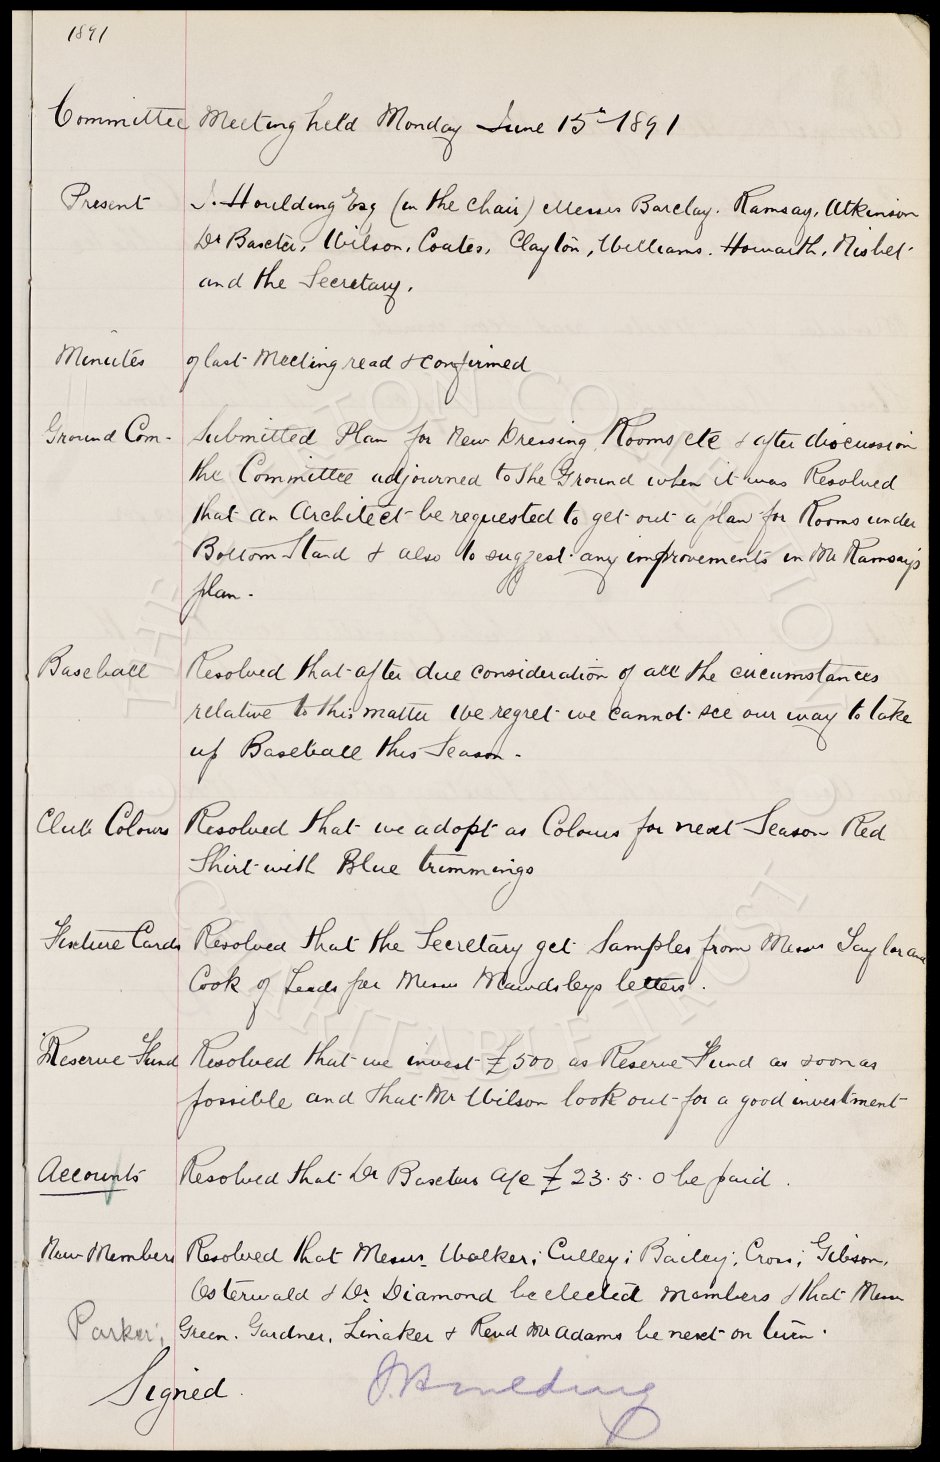 1891
Committee Meeting held Monday June 15th 1891
Present J. Houlding Esq (in the chair) Messrs Barclay. Ramsay. Atkinson
Dr Baxter, Wilson, Coates, Clayton, Williams. Howarth, Nisbet
and the Secretary.
Minutes of last Meeting read & confirmed
Ground Com- Submitted Plan for New Dressing Rooms etc & after discussion
the Committee adjourned to the Ground when it was Resolved
that an Architect be requested to get out a plan for Rooms under
Bottom Stand & also to suggest any improvements in Mr Ramsay's
plan.
Baseball Resolved that after due consideration of all the circumstances
relative to this matter we regret we cannot see our way to take
up Baseball this Season.
Club Colours Resolved that we adopt as Colours for next Season Red
Shirt with Blue trimmings
Fixture Cards Resolved that the Secretary get Samples from Messrs Taylor and
Cook of Leeds per Messrs Mawdsleys letters.
Reserve Fund Resolved that we invest £500 as Reserve Fund as soon as
possible and that Mr Wilson look out for a good investment
Accounts Resolved that Dr Baxters a/c £23.5.0 be paid.
New Members Resolved that Messrs. Walker; Culley; Bailey; Cross; Gibson,
Osterwald & Dr. Diamond be elected members & that Messrs
Parker; Green. Gardner, Linaker & Revd Mr Adams be next on turn.
Signed. J. Houlding
THE EVERTON COLLECTION CHARITABLE TRUST